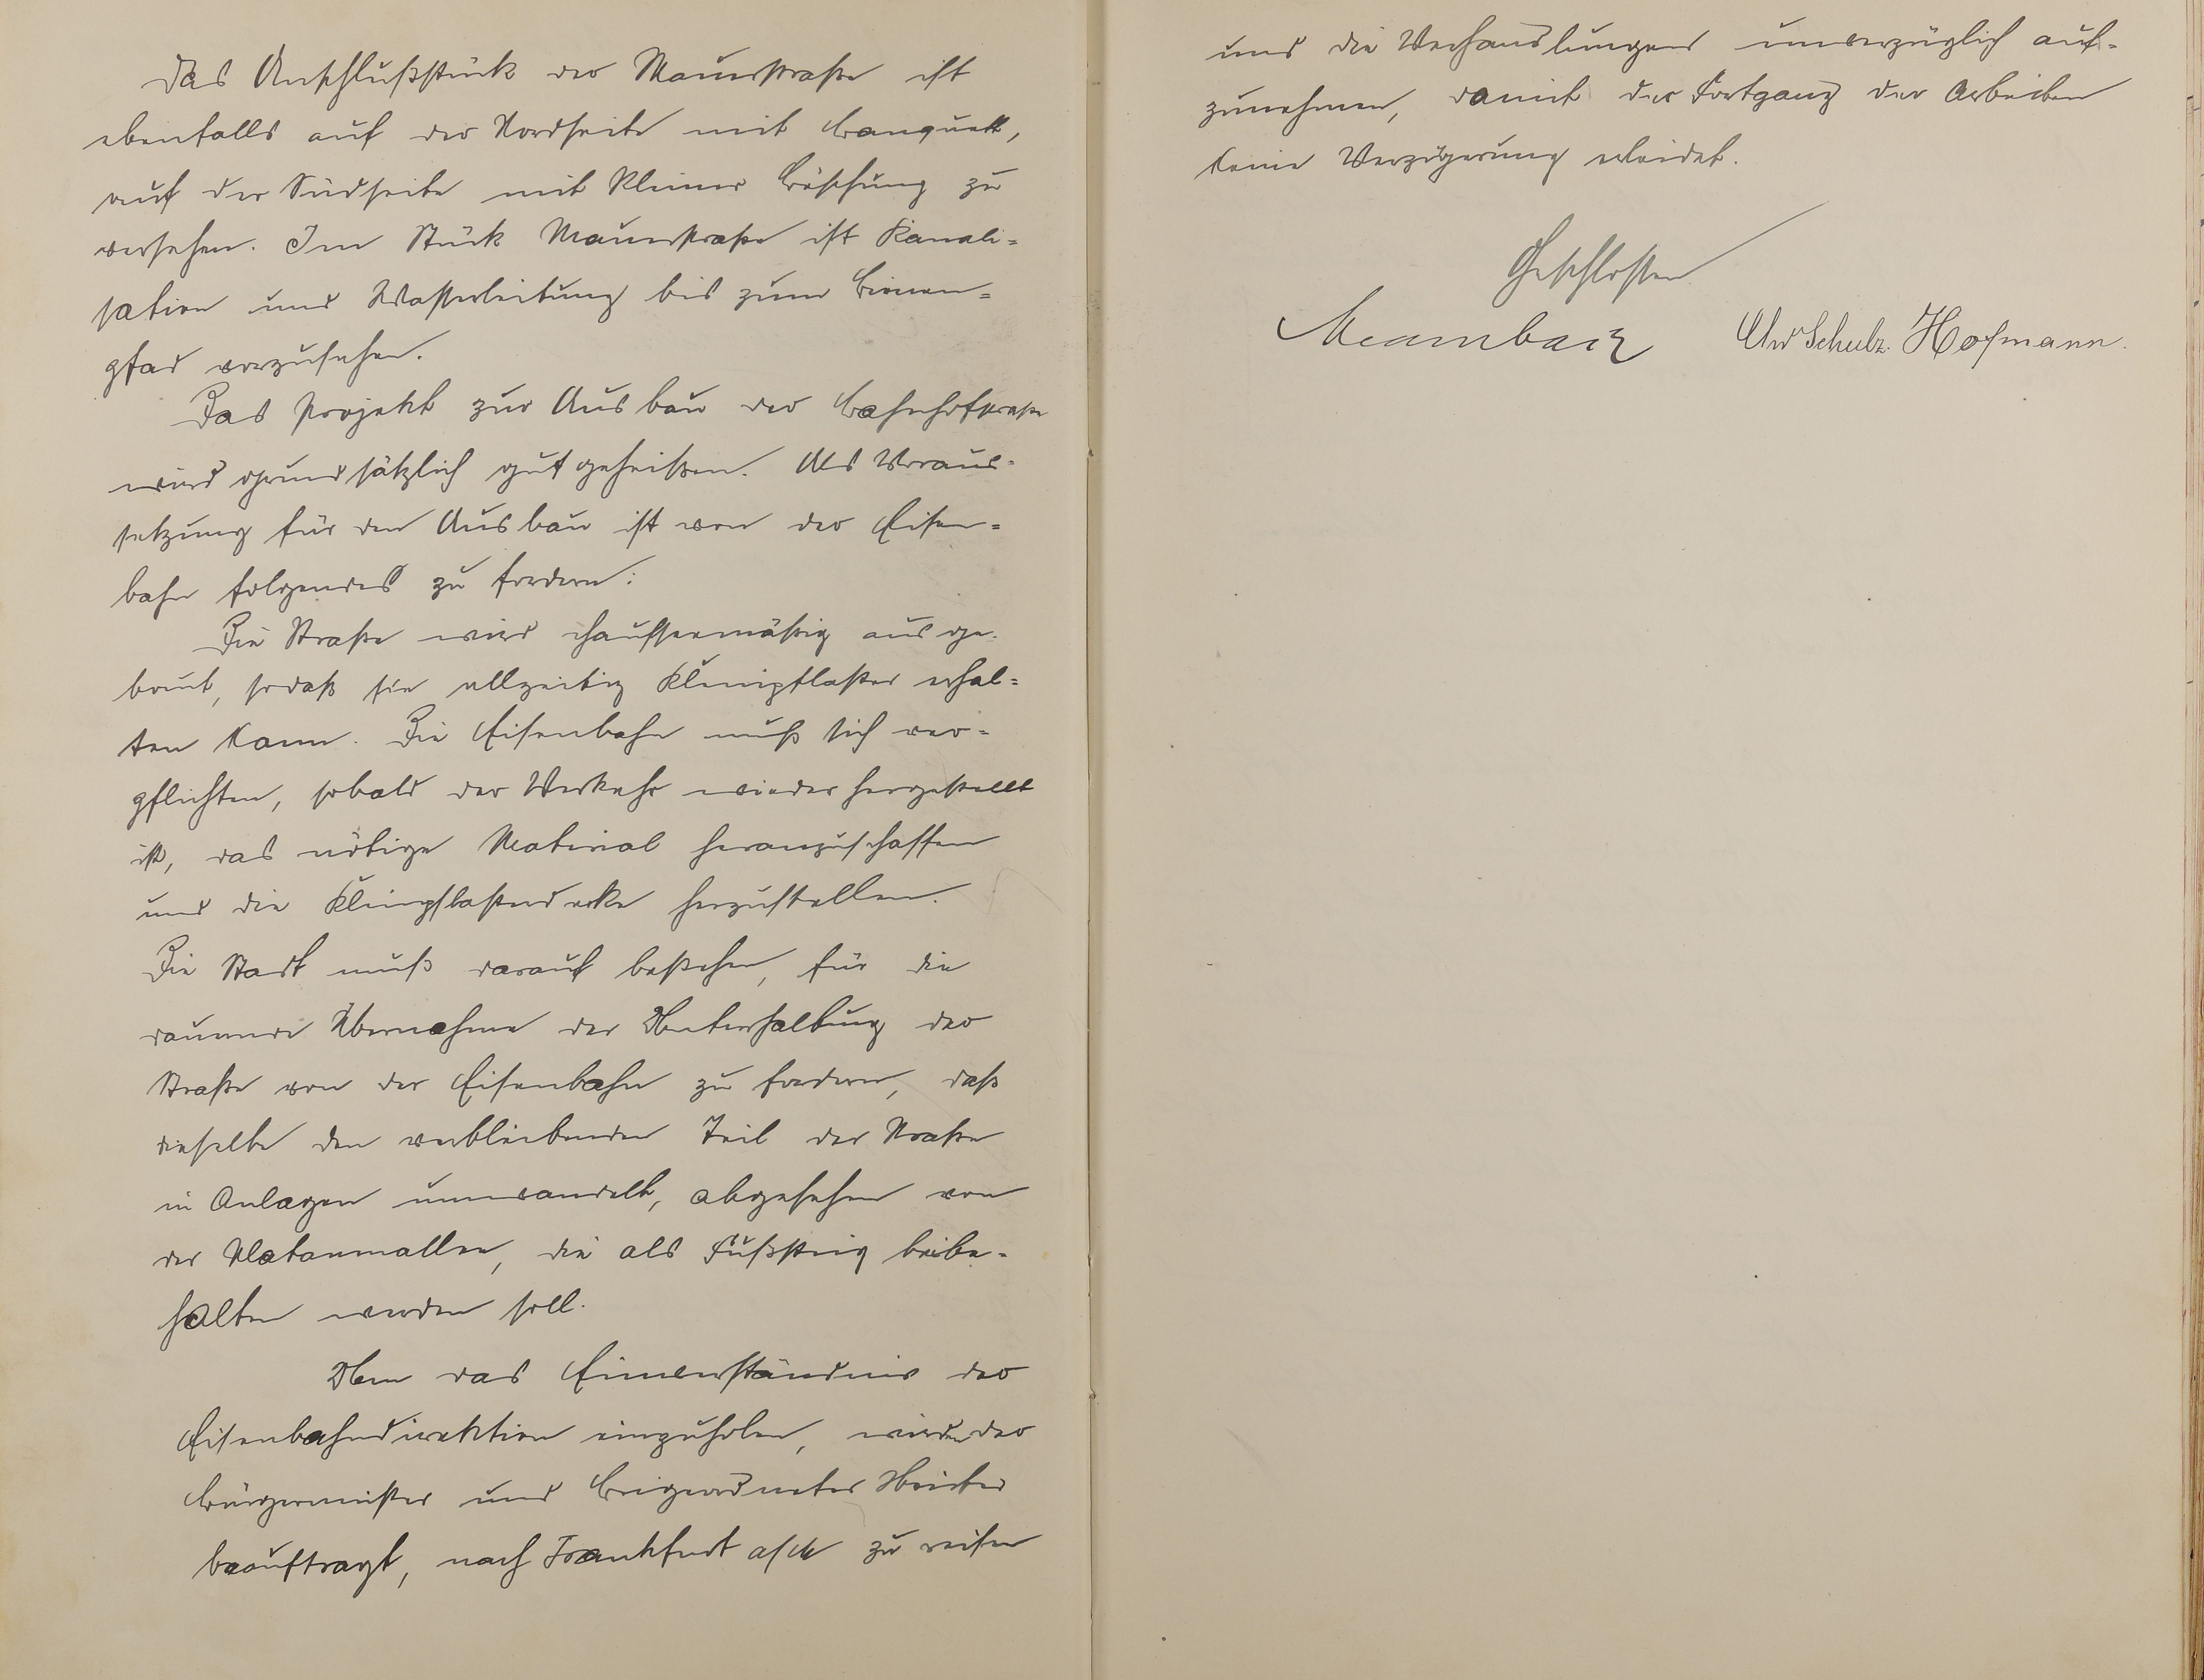 Das Anschlußstück der Mauerstraße ist
ebenfalls auf der Nordseite mit Banquett,
auf der Südseite mit kleiner Böschung zu
versehen. Im Stück Mauerstraße ist Kanali=
sation und Wasserleitung bis zum Birnen=
pfad vorzusehen.
Das Projekt zur Ausbau der Bahnhofstraße
wird grundsätzlich gutgeheißen. Als Voraus-
setzung für den Ausbau ist von der Eisen=
bahn folgendes zu fordern:
Die Straße wird chausseemäßig ausge-
baut, sodaß sie allzeitig Kleinpflaster erhal=
ten kann. Die Eisenbahn muß sich ver=
pflichten, sobald der Verkehr wieder hergestellt
ist, das nötige Material heranzuschaffen
und die Kleinpflasterdecke herzustellen.
Die Stadt muß darauf bestehen, für die
dauernde Übernahme der Unterhaltung der
Straße von der Eisenbahn zu fordern, daß
dieselbe den verbleibenden Teil der Straße
in Anlagen umwandelt, abgesehen von
der Platanenallee, die als Fußsteig beibe-
halten werden soll.
Um das Einverständnis der
Eisenbahndirektion einzuholen, wird der
Bürgermeister und Beigeordneter
beauftragt, nach Frankfurt a/M zu reisen
und die Verhandlungen unverzüglich auf-
zunehmen, damit der Fortgang der Arbeiten
keine Verzögerung erleidet.
Geschlossen
Schulz. Hofmann.